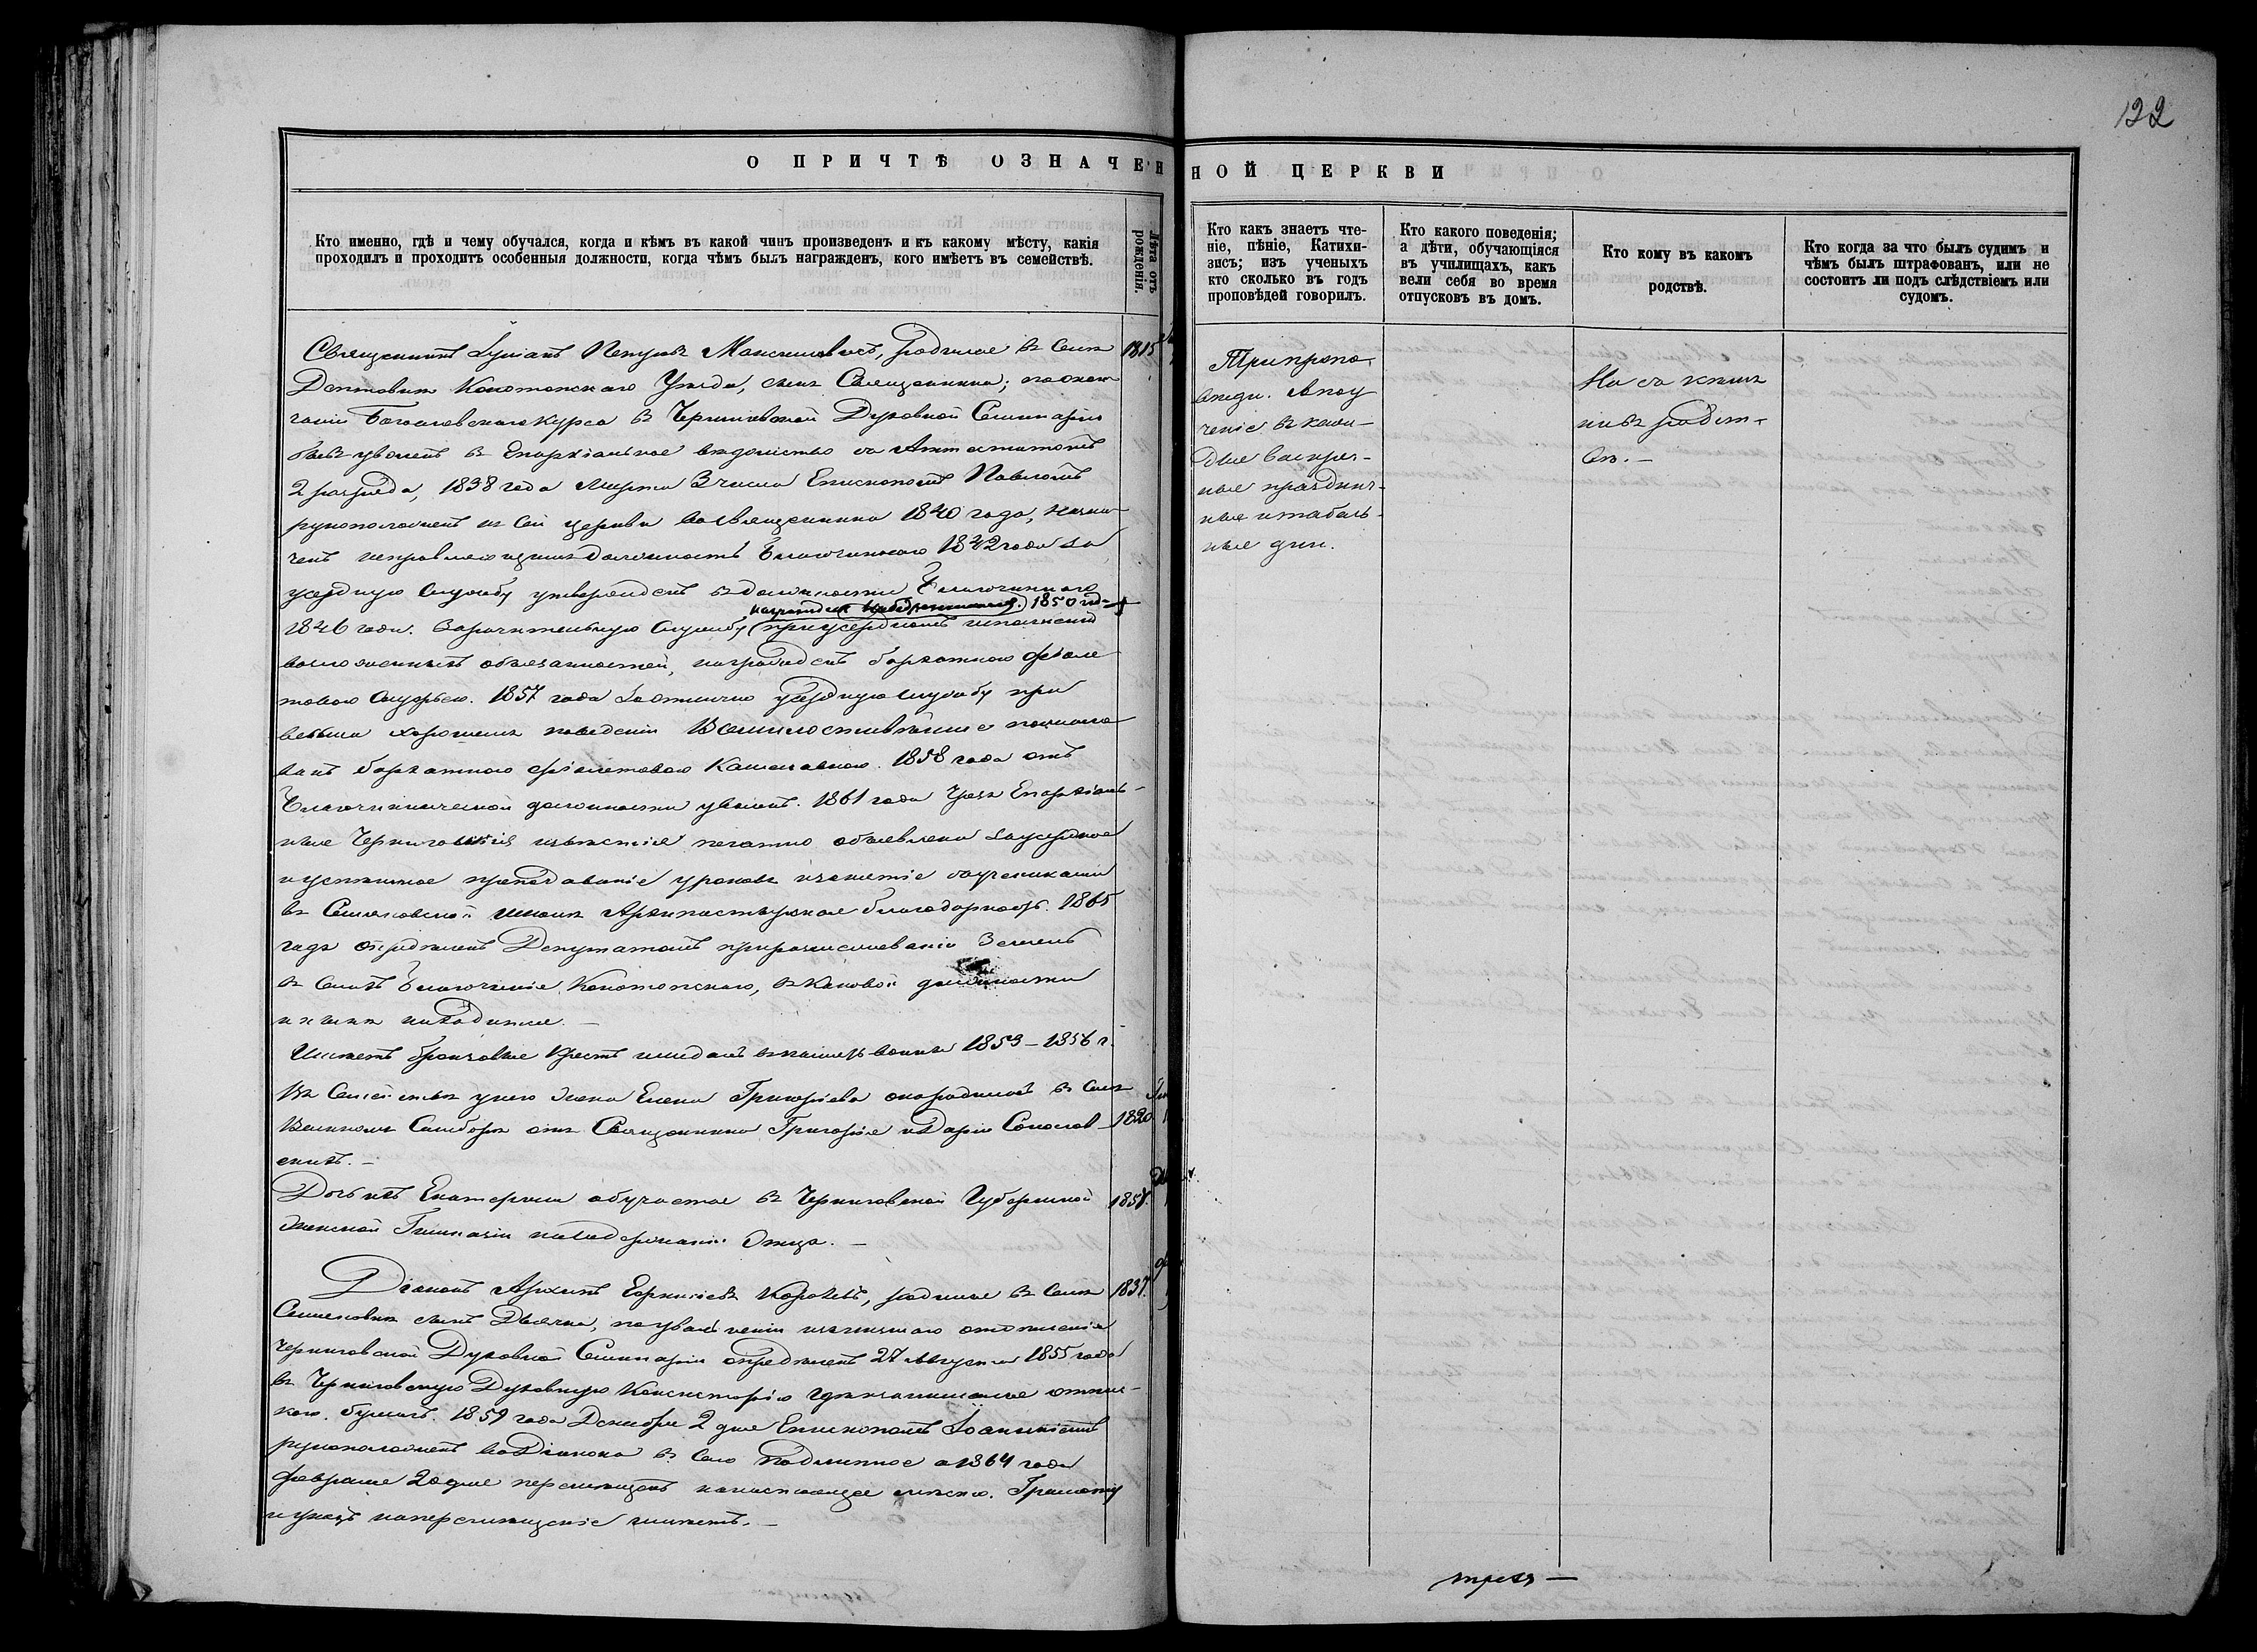 122
О ПРИЧТѢ ОЗНАЧЕННОЙ ЦЕРКВИ
Кто именно, гдѣ и чему обучался, когда и кѣмъ въ какой чинъ произведенъ и къ какому мѣсту, какія
проходилъ и проходитъ особенныя должности, когда чѣмъ былъ награжденъ, кого имѣетъ въ семействѣ.
Лѣта отъ
рожденія.
Священникъ Петровъ Максимовичъ, родился въ селѣ 1815
Дептовкѣ Конотопскаго Уѣзда, сынъ Священника; по окон-
чаніи Богословскаго курса въ Черниговской Духовной Семинаріи
былъ уволенъ въ Епархіальное вѣдомство съ Аттестатомъ
2 разряда, 1838 года Марта 3 числа Епископомъ Павломъ
рукоположенъ къ сей церкви во священника 1840 года, назна-
ченъ исправляющимъ должность Благочиннаго 1842 года за
усердную службу утвержденъ въ должности Благочиннаго
награжденъ набедренникомъ. 1850 го-
1846 года. За рачительную службу при усердномъ исполненіи
возложенныхъ обязанностей, награжденъ бархатною фіоле-
товою скуфьею. 1857 года за отлично усердную службу при
весьма хорошемъ поведеніи Всемилостивѣйше пожало-
ванъ бархатною фіолетовою камилавкою. 1858 года отъ
Благочиннической должности уволенъ. 1861 года чрезъ Епархіаль-
ныя Черниговскія извѣстія печатно объявлена за усердное
и успѣшное преподаваніе уроковъ и занятіе съ учениками
въ школѣ Архипастырская благодарность. 1865
года опредѣленъ Депутатомъ при размежеваніи земель
въ благочиніи Конотопскаго, въ каковой должности
и нынѣ находится. —
Имѣетъ бронзовые крестъ и медаль въ память войны 1853–1856 г.
Въ Семействѣ у него жена Елена Григорьева она родилась въ селѣ
Великомъ Самборѣ отъ Священника Григорія и Даріи 1820
скихъ. —
Дочь ихъ Екатерина обучается въ Черниговской Губернской 1858.
женской Гимназіи на содержаніи Отца. —
Діаконъ Архипъ родился въ селѣ 1837.
сынъ Дьячка, по уволненіи изъ низшаго отдѣленія
Черниговской Духовной Семинаріи опредѣленъ 27 Августа 1855 года
въ Черниговскую Духовную Консисторію
бумагъ. 1859 года Декабря 2 дня Епископомъ
рукоположенъ во Діакона въ село Подлипное а 1864 года
Февраля 20 дня перемѣщенъ на настоящее мѣсто. Грамоту
и указъ на перемѣщеніе имѣетъ. —
Кто какъ знаетъ чте-
ніе, пѣніе, Катихи-
зисъ; изъ ученыхъ
кто сколько въ годъ
проповѣдей говорилъ.
Три пропо-
вѣди. А поу-
ченіе въ каж-
дые воскрес-
ные празднич-
ные и табель-
ные дни.
Кто какого поведенія;
а дѣти, обучающіяся
въ училищахъ, какъ
вели себя во время
отпусковъ въ домъ.
Кто кому въ какомъ
родствѣ.
Ни съ кѣмъ
не въ родст-
вѣ. —
Кто когда за что былъ судимъ и
чѣмъ былъ штрафованъ, или не
состоитъ ли подъ слѣдствіемъ или
судомъ.